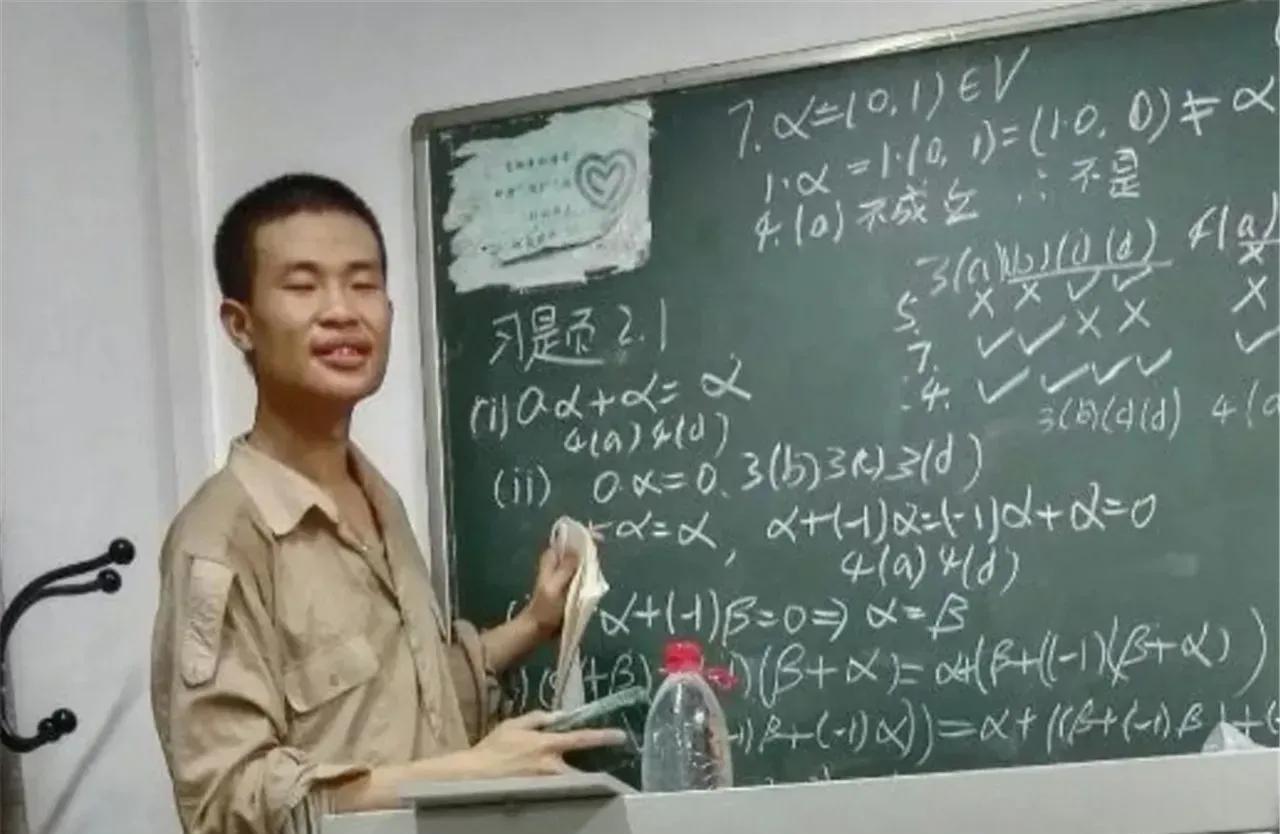 7. α=(0,1)∈V
1·α=1·(0,1)=(1·0, 0)≠α
4.(a)不成立 ∴不是
3(a)(b)(c)(d) 4(a)
5. × × ✓ ✓ ×
7. ✓ ✓ × × ×
4. ✓ ✓ ✓ ✓ ✓
3(b)(d)(d) 4(a
习是页2.1
(i) 0α+α=α
4(a)4(d)
(ii) 0α=0. 3(b)3(c)3(d)
α=α, α+(-1)α=(-1)α+α=0
4(a)4(d)
α+(-1)β=0⇒α=β
+β) (β+α)=α+(β+((-1)(β+α))
β+(-1)α))=α+((β+(-1)β)+(